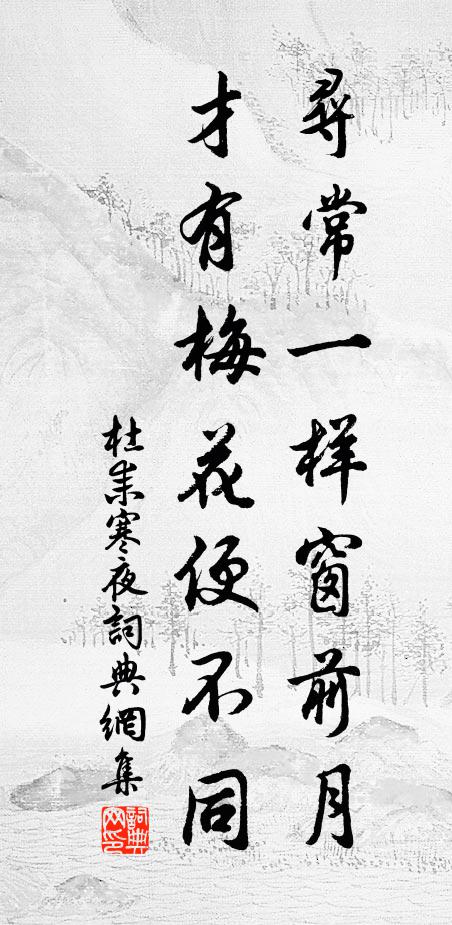 尋常一样窗前月
才有梅花便不同
杜耒寒夜詞典網集
詞典
网印